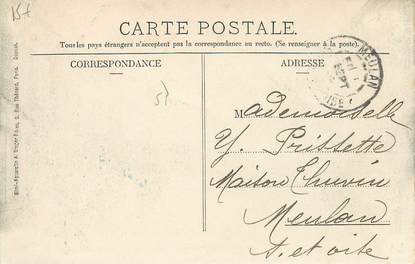 CARTE POSTALE.
Tous les pays étrangers n'acceptent pas la correspondance au recto. (Se renseigner à la poste).
CORRESPONDANCE
ADRESSE
MEULAN
SEPT
Mademoiselle
Y. Prissette
Maison Thuvin
Meulan
S. et oise